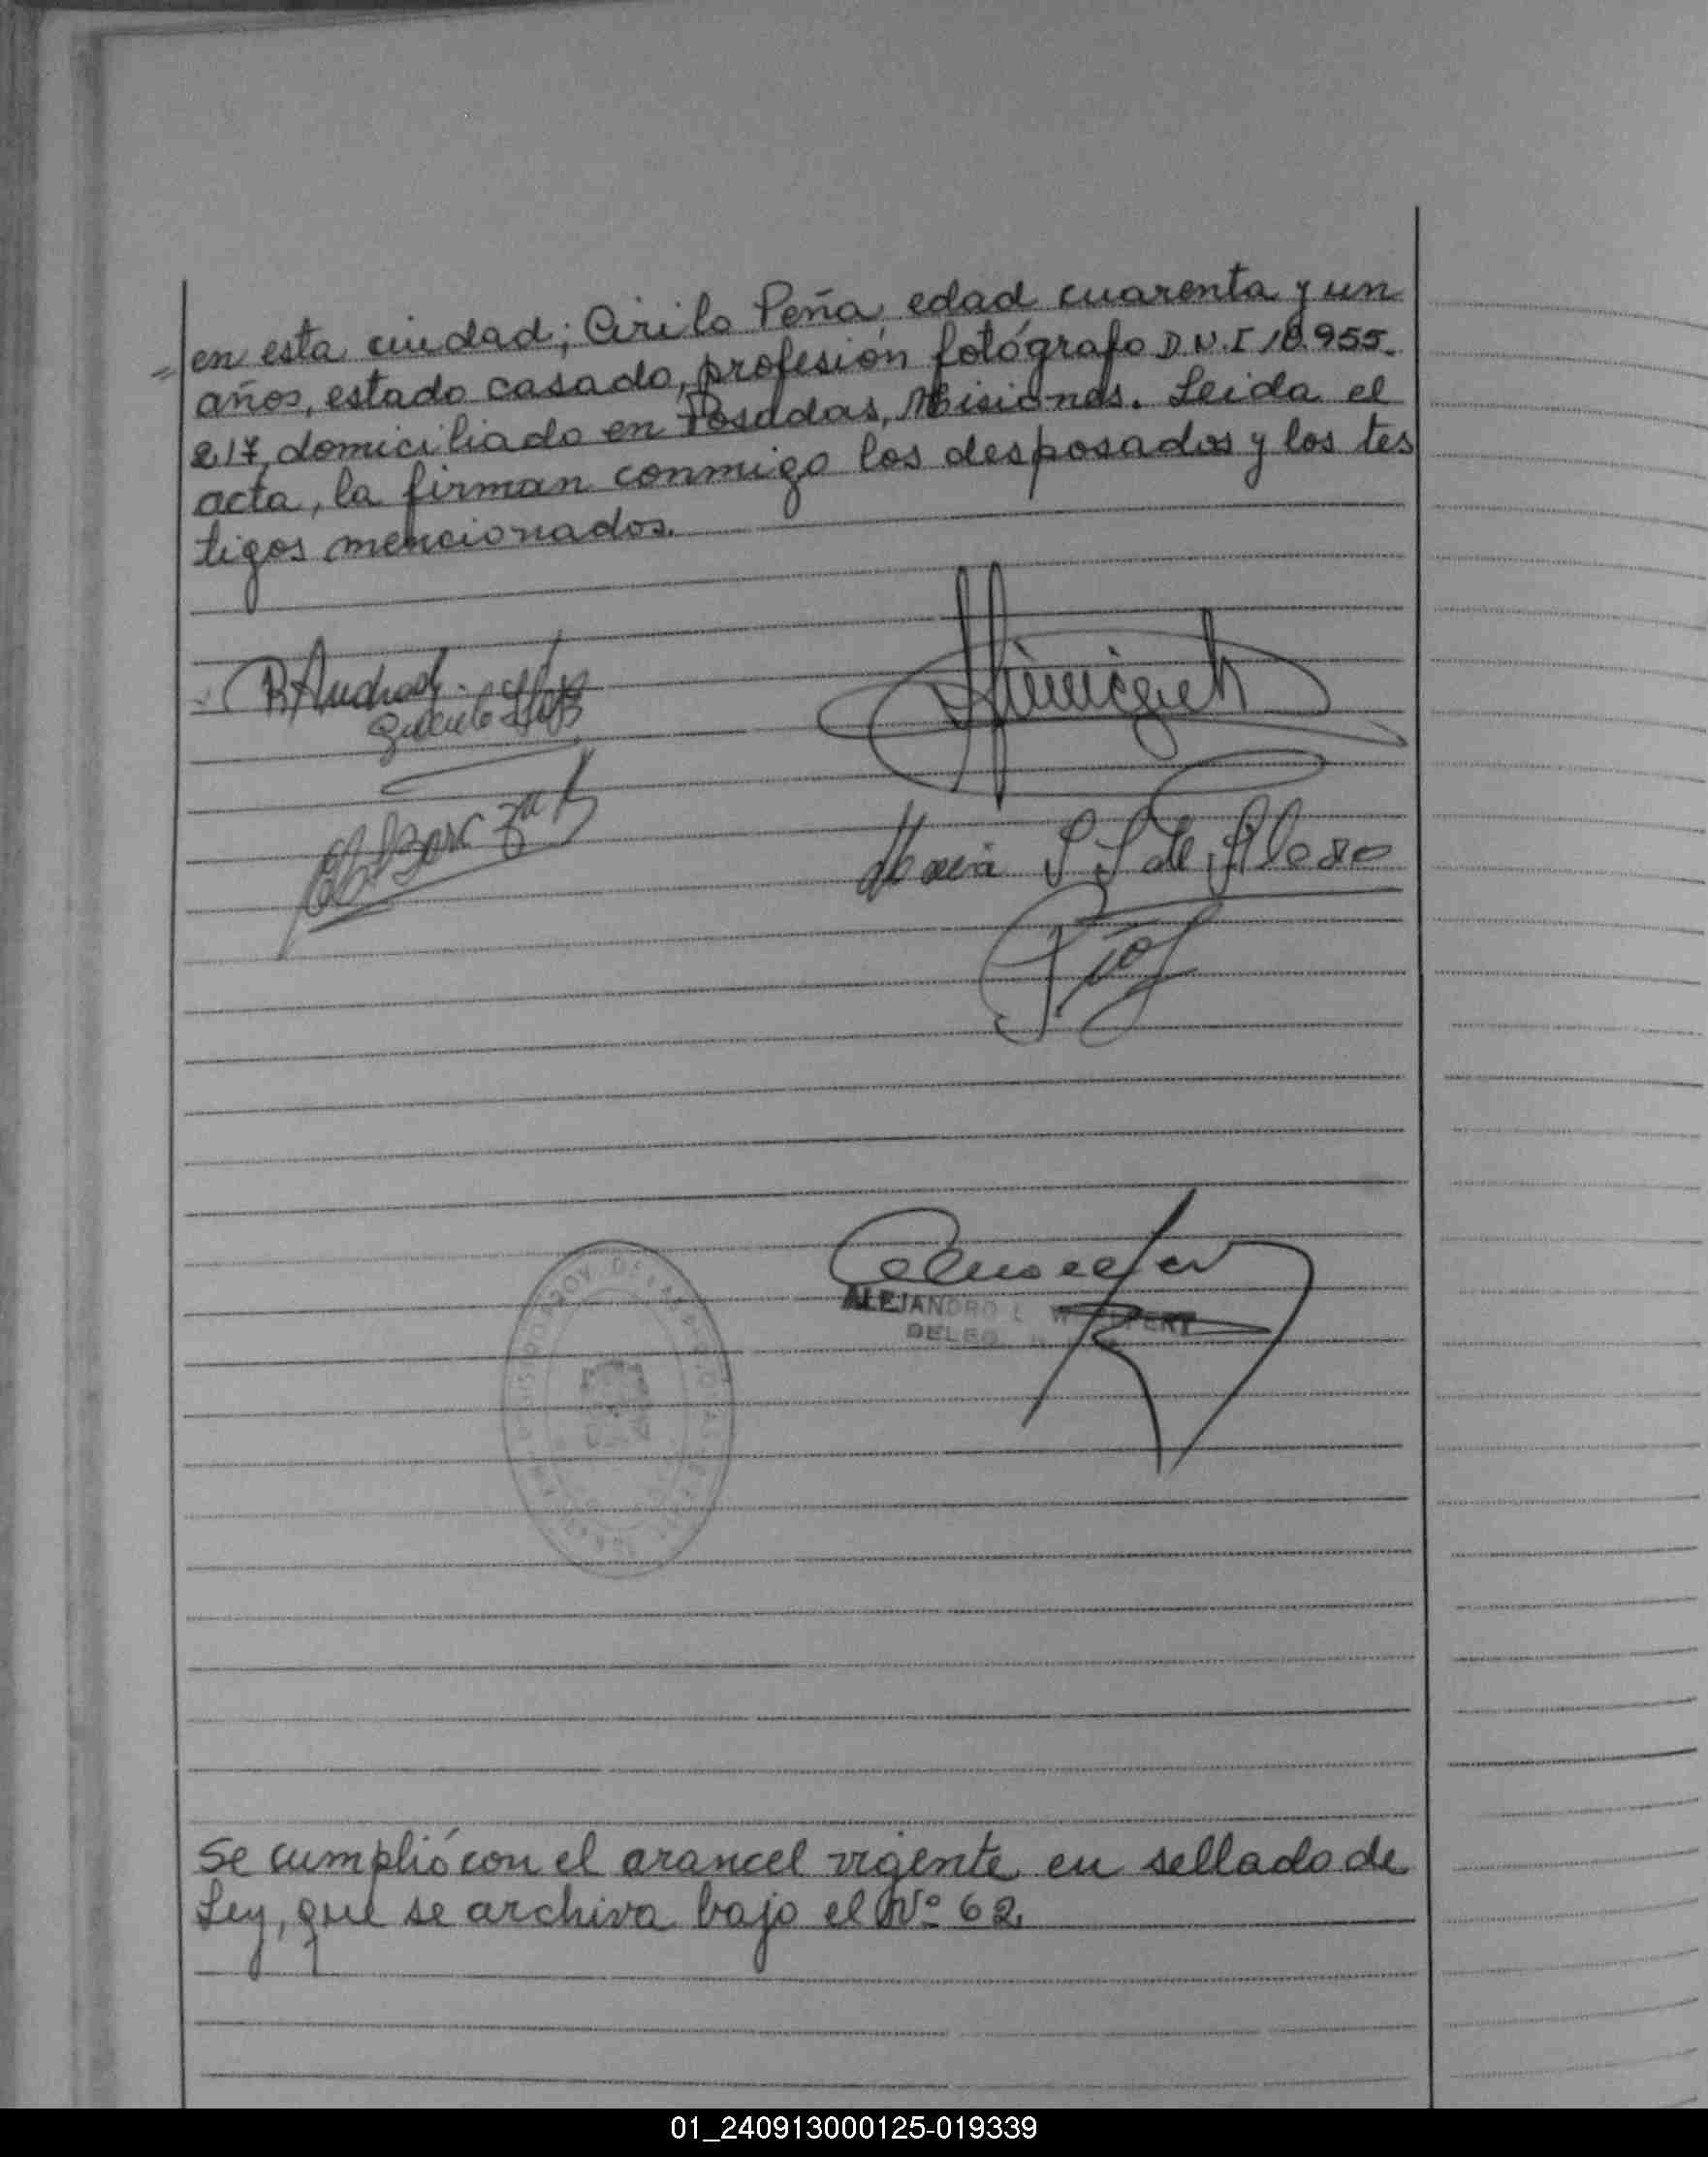 = en esta ciudad; Cirilo Peña, edad cuarenta y un
años, estado casado, profesión fotógrafo D.N.I 10.955.
217, domiciliado en Posadas, Misiones. Leida el
acta, la firman conmigo los desposados y los tes
tigos mencionados.
R. Andrad
Maria S. S. de Alosso
ALEJANDRO L
DELEG
Se cumplió con el arancel vigente en sellado de
Ley, que se archiva bajo el Nº 62.
01_240913000125-019339